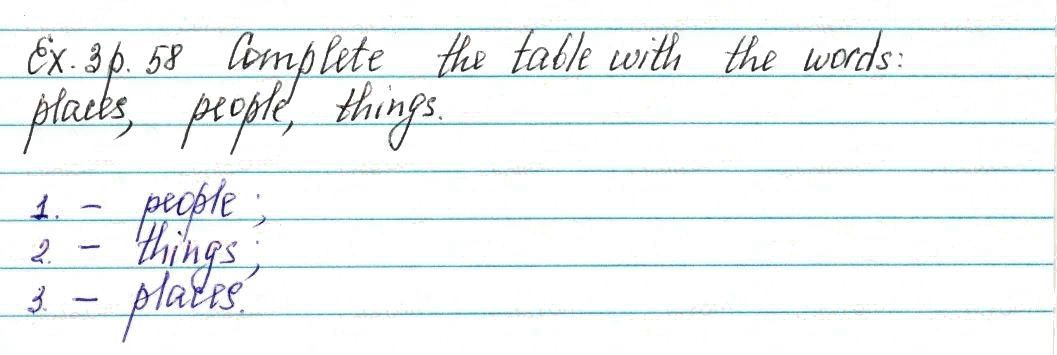 Ex. 3 p. 58 Complete the table with the words:
places, people, things.
1. – people;
2. – things;
3. – places.